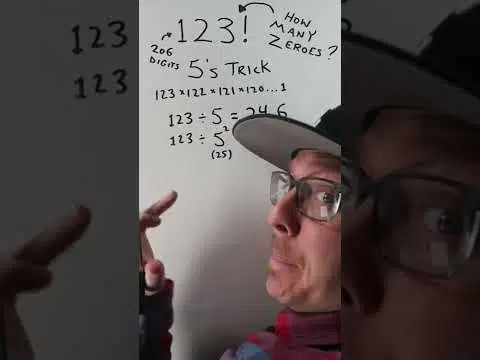 123!
HOW
MANY
ZEROES?
206
DIGITS
5's TRICK
123 × 122 × 121 × 120 ... 1
123 ÷ 5 = 24.6
123 ÷ 5²
(25)